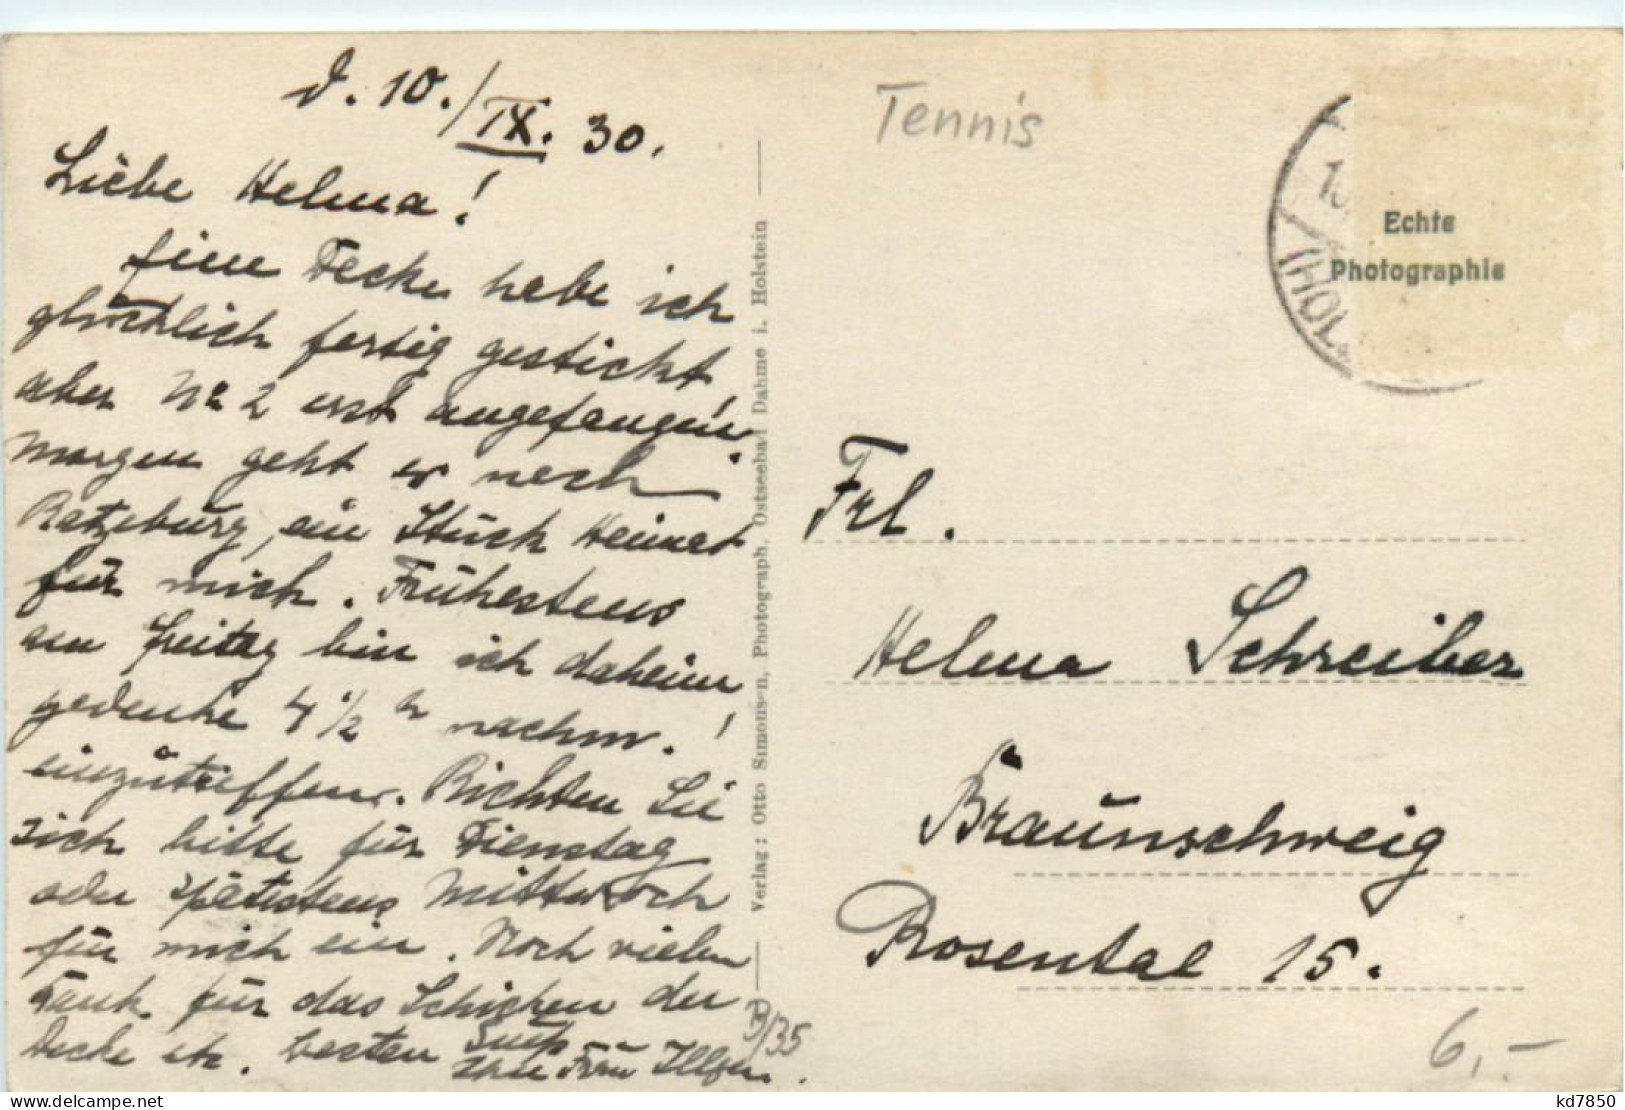 d. 10./IX. 30.
Liebe Helma!
Eine Decke habe ich
glücklich fertig gestickt,
aber No 2 erst angefangen.
Morgen geht es nach
Ratzeburg, ein Stück Heimat
für mich. Frühestens
am Freitag bin ich daheim,
gedenke 4 1/2 h nachm.!
einzutreffen. Richten Sie
sich bitte für Dienstag
oder spätestens Mittwoch
für mich ein. Noch vielen
Dank für das Schicken der
Decke etc. besten
Frau Illgen.
B/35
Verlag: Otto Simonsen, Photograph. Ostseebad Dahme i. Holstein
Tennis
(HOL
Echte
Photographie
Frl.
Helma Schreiber
Braunschweig
Rosental 15.
6,-
delcampe.net
kd7850